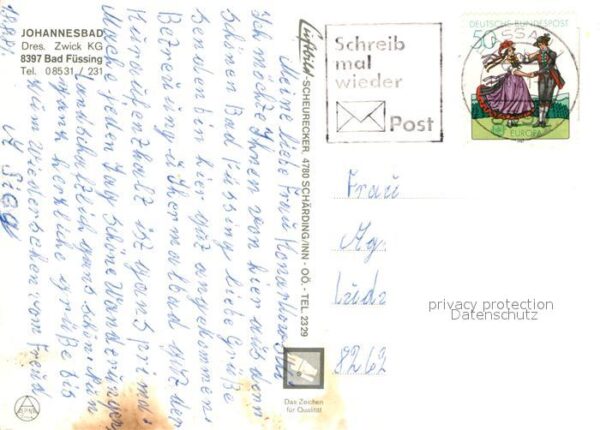 JOHANNESBAD
Dres. Zwick KG
8397 Bad Füssing
Tel. 08531 / 231
Luftbild-SCHEURECKER, 4780 SCHÄRDING/INN - OÖ. - TEL. 2329
Schreib
mal
wieder
Post
DEUTSCHE BUNDESPOST
50
EUROPA
Meine liebe Frau
Ich möchte Ihnen von hier aus dem
schönen Bad Füssing liebe Grüße
senden bin hier gut angekommen.
Betreuung u. Thermalbad u. der
Kuraufenthalt ist ganz prima.
Mache jeden Tag schöne Wanderungen
Landschaftlich ganz schön. Nun
ganz herzliche Grüße bis
zum Wiedersehen von
Frau
8262
privacy protection
Datenschutz
Das Zeichen
für Qualität